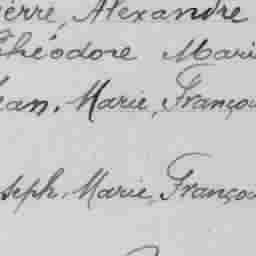 ierre, Alexandre
Théodore Marie
ean, Marie, Françoi
seph, Marie, Françoi